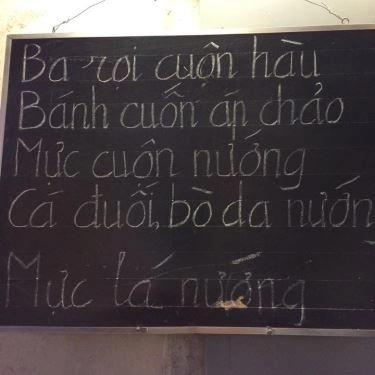 Ba rọi cuộn hàu
Bánh cuốn áp chảo
Mực cuộn nướng
Cá đuối, bò da nướn
Mực lá nướng